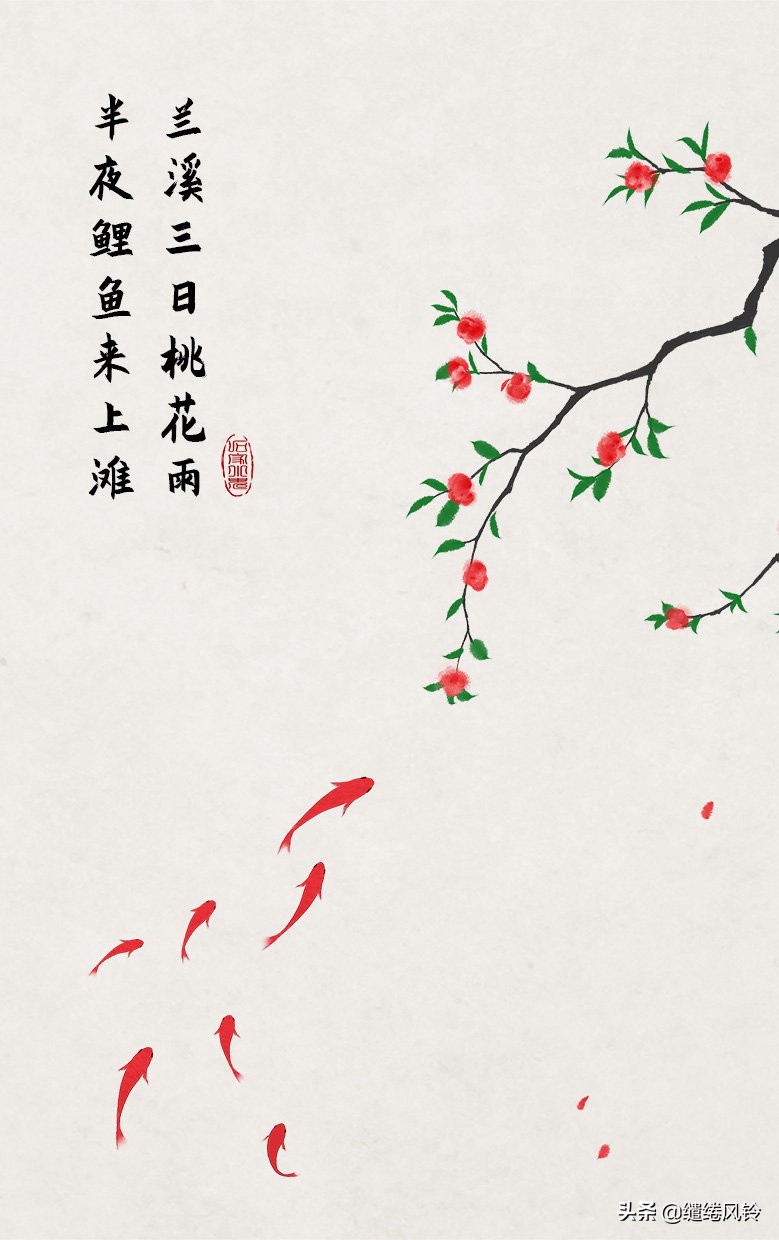 兰溪三日桃花雨
半夜鲤鱼来上滩
头条 @缱绻风铃